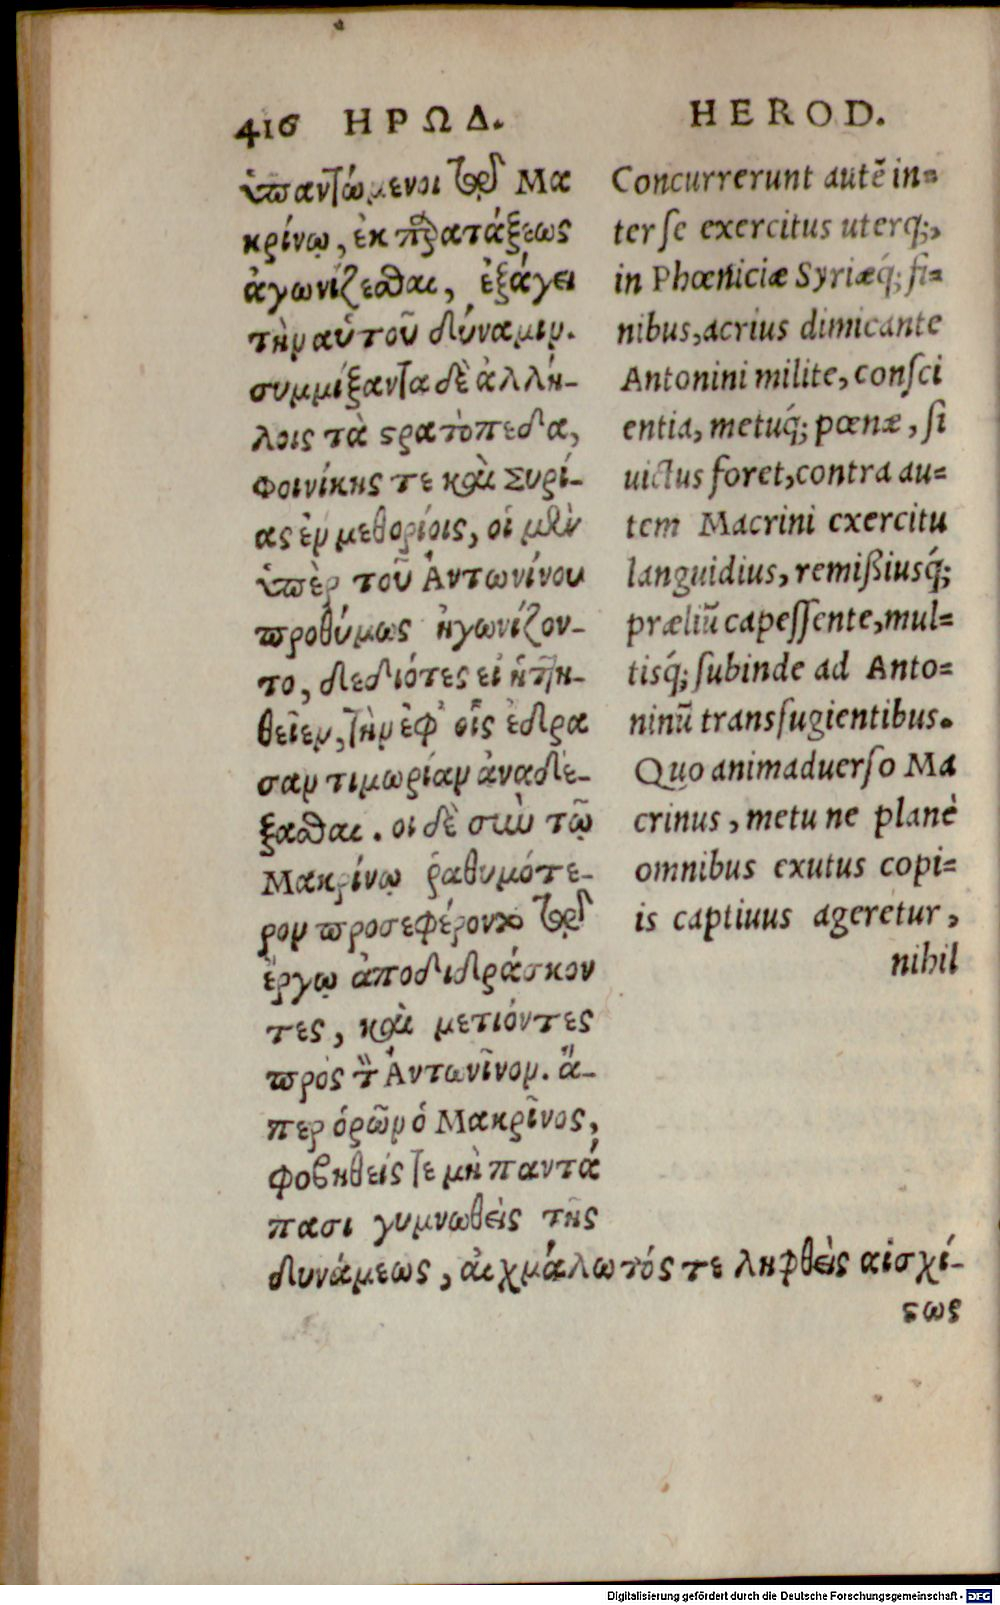 416 ΗΡΩΔ.
ὑπαντώμενοι τῷ Μα
κρίνῳ, ἐκ παρατάξεως
ἀγωνίζεσθαι, ἐξάγει
τὴν αὑτοῦ δύναμιν.
συμμίξαντα δὲ ἀλλή-
λοις τὰ στρατόπεδα,
Φοινίκης τε καὶ Συρί-
ας ἐν μεθορίοις, οἱ μὲν
ὑπὲρ τοῦ Ἀντωνίνου
προθύμως ἠγωνίζον-
το, δεδιότες εἰ ἡττη-
θεῖεν, τὴν ἐφ' οἷς ἔδρα
σαν τιμωρίαν ἀναδέ-
ξασθαι. οἱ δὲ σὺν τῷ
Μακρίνῳ ῥαθυμότε-
ρον προσεφέροντο τῷ
ἔργῳ ἀποδιδράσκον
τες, καὶ μετιόντες
πρὸς τὸν Ἀντωνῖνον. ἅ-
περ ὁρῶν ὁ Μακρῖνος,
φοβηθείς τε μὴ παντά
πασι γυμνωθεὶς τῆς
δυνάμεως, αἰχμάλωτός τε ληφθεὶς αἰσχί-
στως
HEROD.
Concurrerunt autē in=
ter se exercitus uterq;,
in Phœniciæ Syriæq́; fi=
nibus, acrius dimicante
Antonini milite, consci
entia, metuq́; pœnæ, si
uictus foret, contra au=
tem Macrini exercitu
languidius, remißiusq́;
præliū capessente, mul=
tisq́; subinde ad Anto=
ninū transfugientibus.
Quo animaduerso Ma
crinus, metu ne planè
omnibus exutus copi=
is captiuus ageretur,
nihil
Digitalisierung gefördert durch die Deutsche Forschungsgemeinschaft - DFG